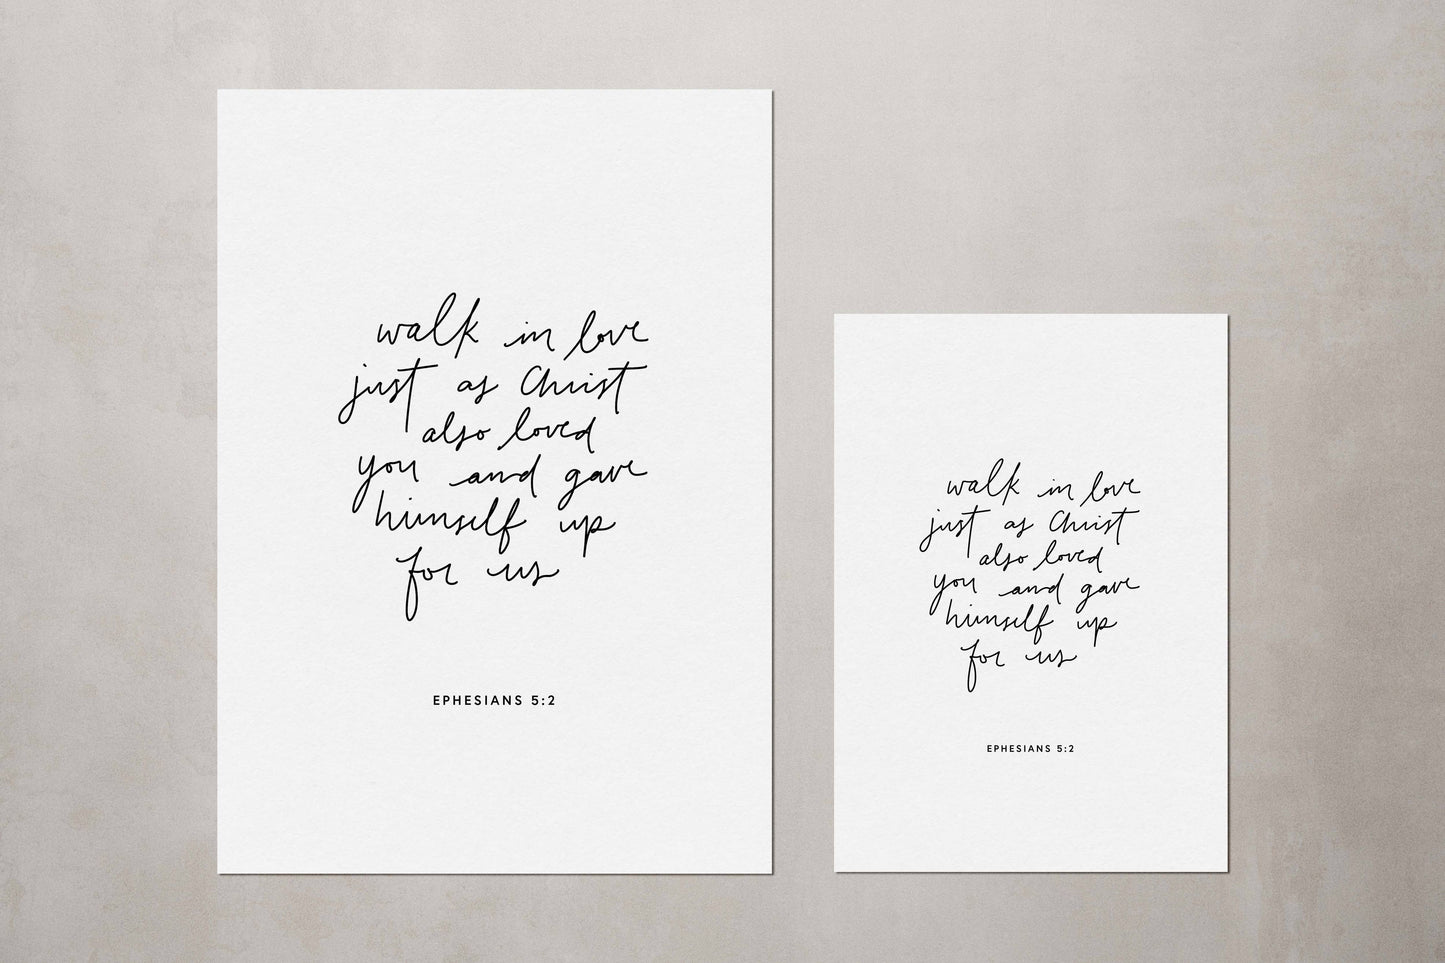 walk in love
just as Christ
also loved
you and gave
himself up
for us
EPHESIANS 5:2
walk in love
just as Christ
also loved
you and gave
himself up
for us
EPHESIANS 5:2